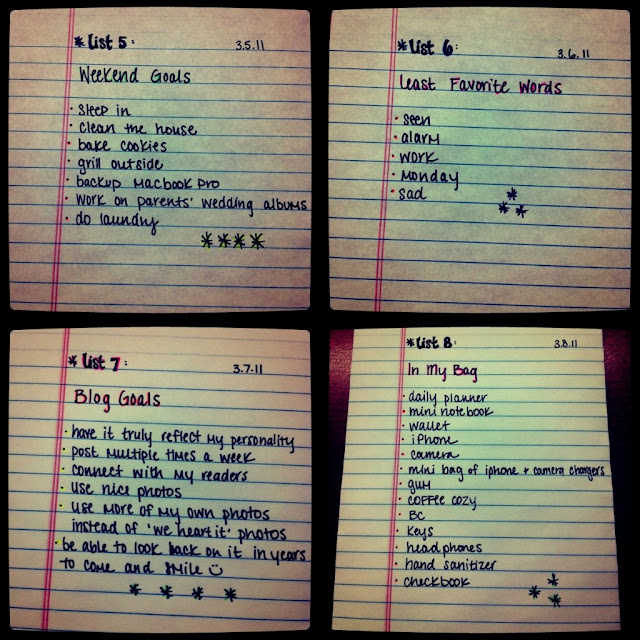 * List 5: 3.5.11
Weekend Goals
· sleep in
· clean the house
· bake cookies
· grill outside
· backup macbook pro
· work on parents' wedding albums
· do laundry
* List 6: 3.6.11
Least Favorite Words
· seen
· alarm
· work
· Monday
· sad
* List 7: 3.7.11
Blog Goals
· have it truly reflect my personality
· post multiple times a week
· connect with my readers
· use nice photos
· use more of my own photos
instead of 'we heart it' photos
· be able to look back on it in years
to come and smile ☺
* List 8: 3.8.11
In My Bag
· daily planner
· mini notebook
· wallet
· iPhone
· camera
· mini bag of iphone + camera chargers
· gum
· coffee cozy
· BC
· keys
· headphones
· hand sanitizer
· checkbook